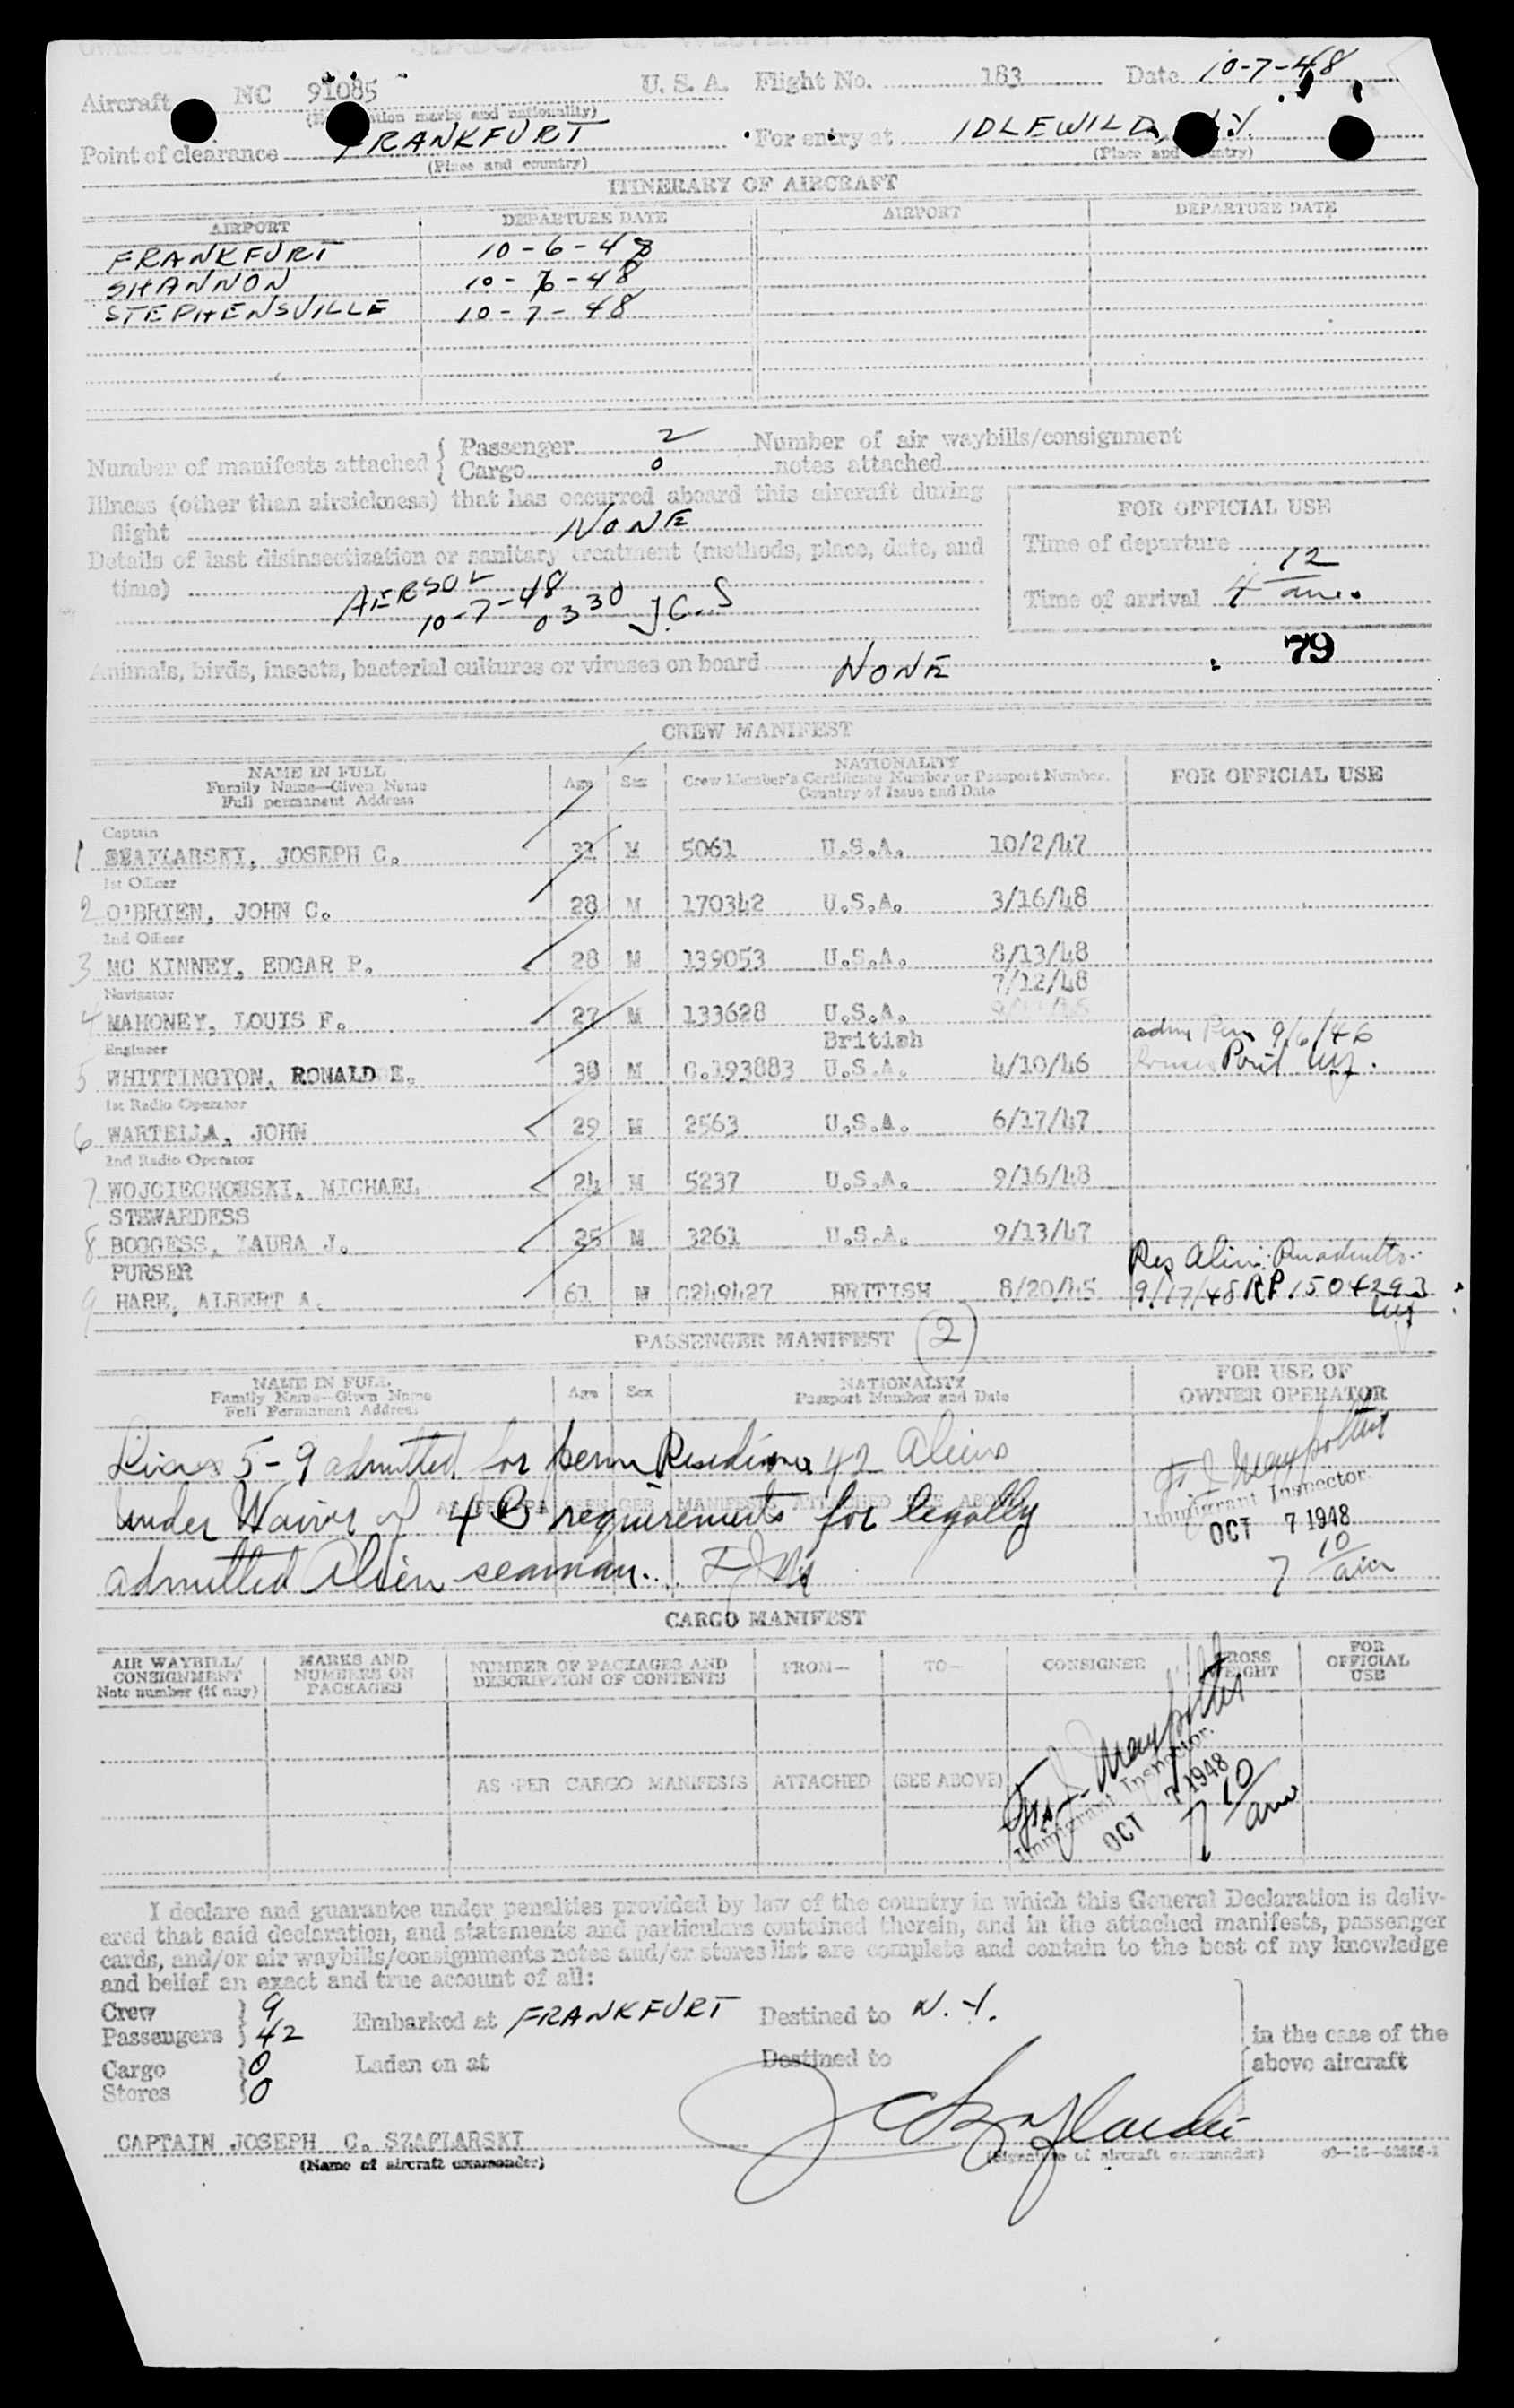 Aircraft NC 91085 U.S.A. Flight No. 183 Date 10-7-48
(Place and country)
Point of clearance FRANKFURT For entry at IDLEWILD,
(Place and country)
ITINERARY OF AIRCRAFT
AIRPORT DEPARTURE DATE AIRPORT DEPARTURE DATE
FRANKFURT 10-6-48
SHANNON 10-7-48
STEPHENSVILLE 10-7-48
Number of manifests attached { Passenger 2 Number of air waybills/consignment
Cargo 0 notes attached
Illness (other than airsickness) that has occurred aboard this aircraft during
flight NONE
FOR OFFICIAL USE
Details of last disinsectization or sanitary treatment (methods, place, date, and
time) AERSOL
10-7-48 0330 J.C.S
Time of departure
Time of arrival 4 12 am.
79
Animals, birds, insects, bacterial cultures or viruses on board NONE
CREW MANIFEST
NAME IN FULL
Family Name—Given Name
Full permanent Address
Age Sex
NATIONALITY
Crew Member's Certificate Number or Passport Number.
Country of Issue and Date
FOR OFFICIAL USE
Captain
1 SZAFLARSKI, JOSEPH C. M 5061 U.S.A. 10/2/47
1st Officer
2 O'BRIEN, JOHN C. 28 M 170342 U.S.A. 3/16/48
2nd Officer
3 MC KINNEY, EDGAR P. 28 M 139053 U.S.A. 8/13/48
7/12/48
Navigator
4 MAHONEY, LOUIS F. 27 M 133628 U.S.A.
British
Engineer adm Perm 9/6/46
5 WHITTINGTON, RONALD E. 30 M C.193883 U.S.A. 4/10/46 Point
1st Radio Operator
6 WARTELLA, JOHN 29 M 2563 U.S.A. 6/17/47
2nd Radio Operator
7 WOJCIECHOWSKI, MICHAEL 24 M 5237 U.S.A. 9/16/48
STEWARDESS
8 BOGGESS, LAURA J. 25 M 3261 U.S.A. 9/13/47
PURSER Res Alien
9 HARE, ALBERT A. 61 M C249427 BRITISH 8/20/45 9/17/48 RP 1504293
PASSENGER MANIFEST 2
NAME IN FULL
Family Name—Given Name
Full Permanent Address
Age Sex
NATIONALITY
Passport Number and Date
FOR USE OF
OWNER OPERATOR
Lines 5-9 admitted for perm Residence 42 Aliens
under Waiver of 4B requirements for legally
admitted Alien seaman.
Immigrant Inspector
OCT 7 1948
7 10 am
CARGO MANIFEST
AIR WAYBILL/
CONSIGNMENT
Note number (if any)
MARKS AND
NUMBERS ON
PACKAGES
NUMBER OF PACKAGES AND
DESCRIPTION OF CONTENTS
FROM— TO— CONSIGNEE GROSS
WEIGHT
FOR
OFFICIAL
USE
AS PER CARGO MANIFESTS ATTACHED (SEE ABOVE)
Immigrant Inspector.
OCT 7 1948
7 10 am
I declare and guarantee under penalties provided by law of the country in which this General Declaration is deliv-
ered that said declaration, and statements and particulars contained therein, and in the attached manifests, passenger
cards, and/or air waybills/consignments notes and/or stores list are complete and contain to the best of my knowledge
and belief an exact and true account of all:
Crew } 9
Passengers } 42 Embarked at FRANKFURT Destined to N.Y.
Cargo } 0 Laden on at Destined to
Stores } 0
in the case of the
above aircraft
CAPTAIN JOSEPH C. SZAFLARSKI
(Name of aircraft commander) (Signature of aircraft commander)